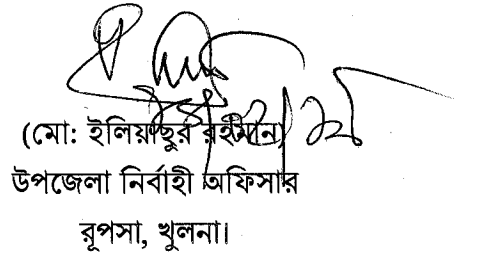 (মো: ইলিয়াছুর রহমান)
উপজেলা নির্বাহী অফিসার
রূপসা, খুলনা।